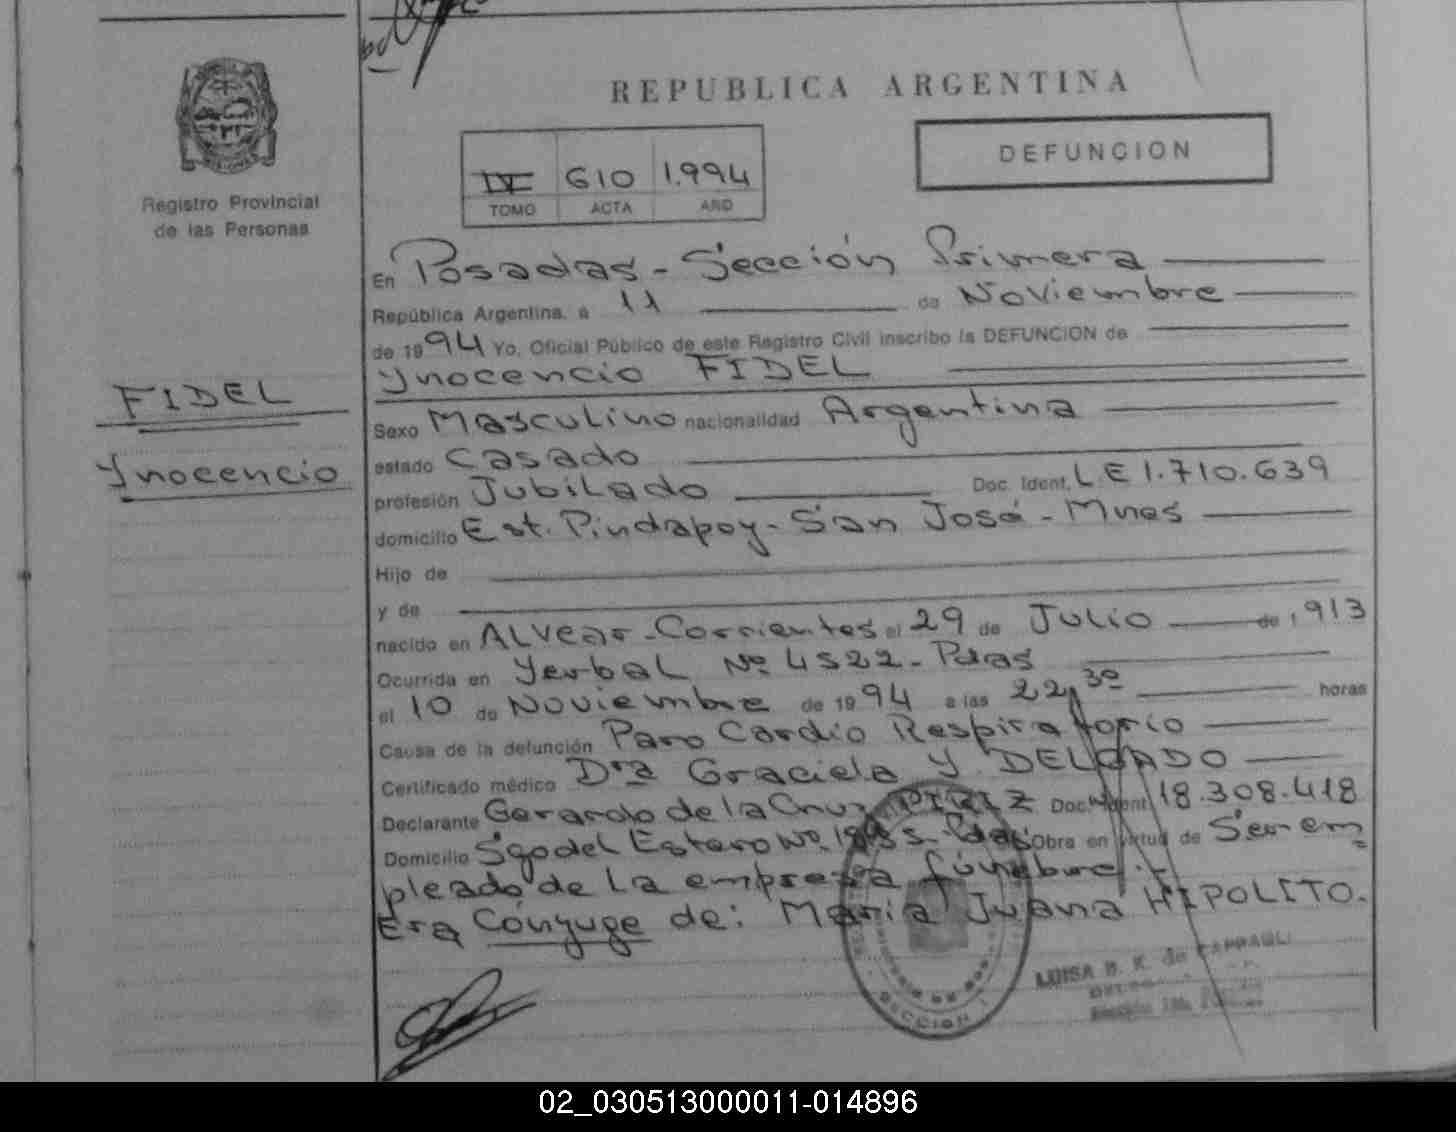 REPUBLICA ARGENTINA
DEFUNCION
IV 610 1.994
TOMO ACTA AÑO
Registro Provincial
de las Personas
En Posadas - Sección Primera
República Argentina, a 11 de Noviembre
de 1994 Yo, Oficial Público de este Registro Civil inscribo la DEFUNCION de
Ynocencio FIDEL
FIDEL
Ynocencio
Sexo Masculino nacionalidad Argentina
estado Casado
profesión Jubilado Doc. Ident. L.E 1.710.639
domicilio Est. Pindapoy - San José - Mnes
Hijo de
y de
nacido en ALVear - Corrientes el 29 de Julio de 1913
Ocurrida en Yerbal Nº 4522 - Pdas
el 10 de Noviembre de 1994 a las 22,30 horas
Causa de la defunción Paro Cardio Respiratorio
Certificado médico Dra Graciela Y. DELGADO
Declarante Gerardo de la Cruz PIRIZ Doc. Ident. 18.308.418
Domicilio Sgo del Estero Nº Pdas Obra en virtud de Ser em
pleado de la empresa fúnebre.-
Era Cónyuge de: María Juana HIPOLITO.
LUISA B. K. de
SECCION
02_030513000011-014896